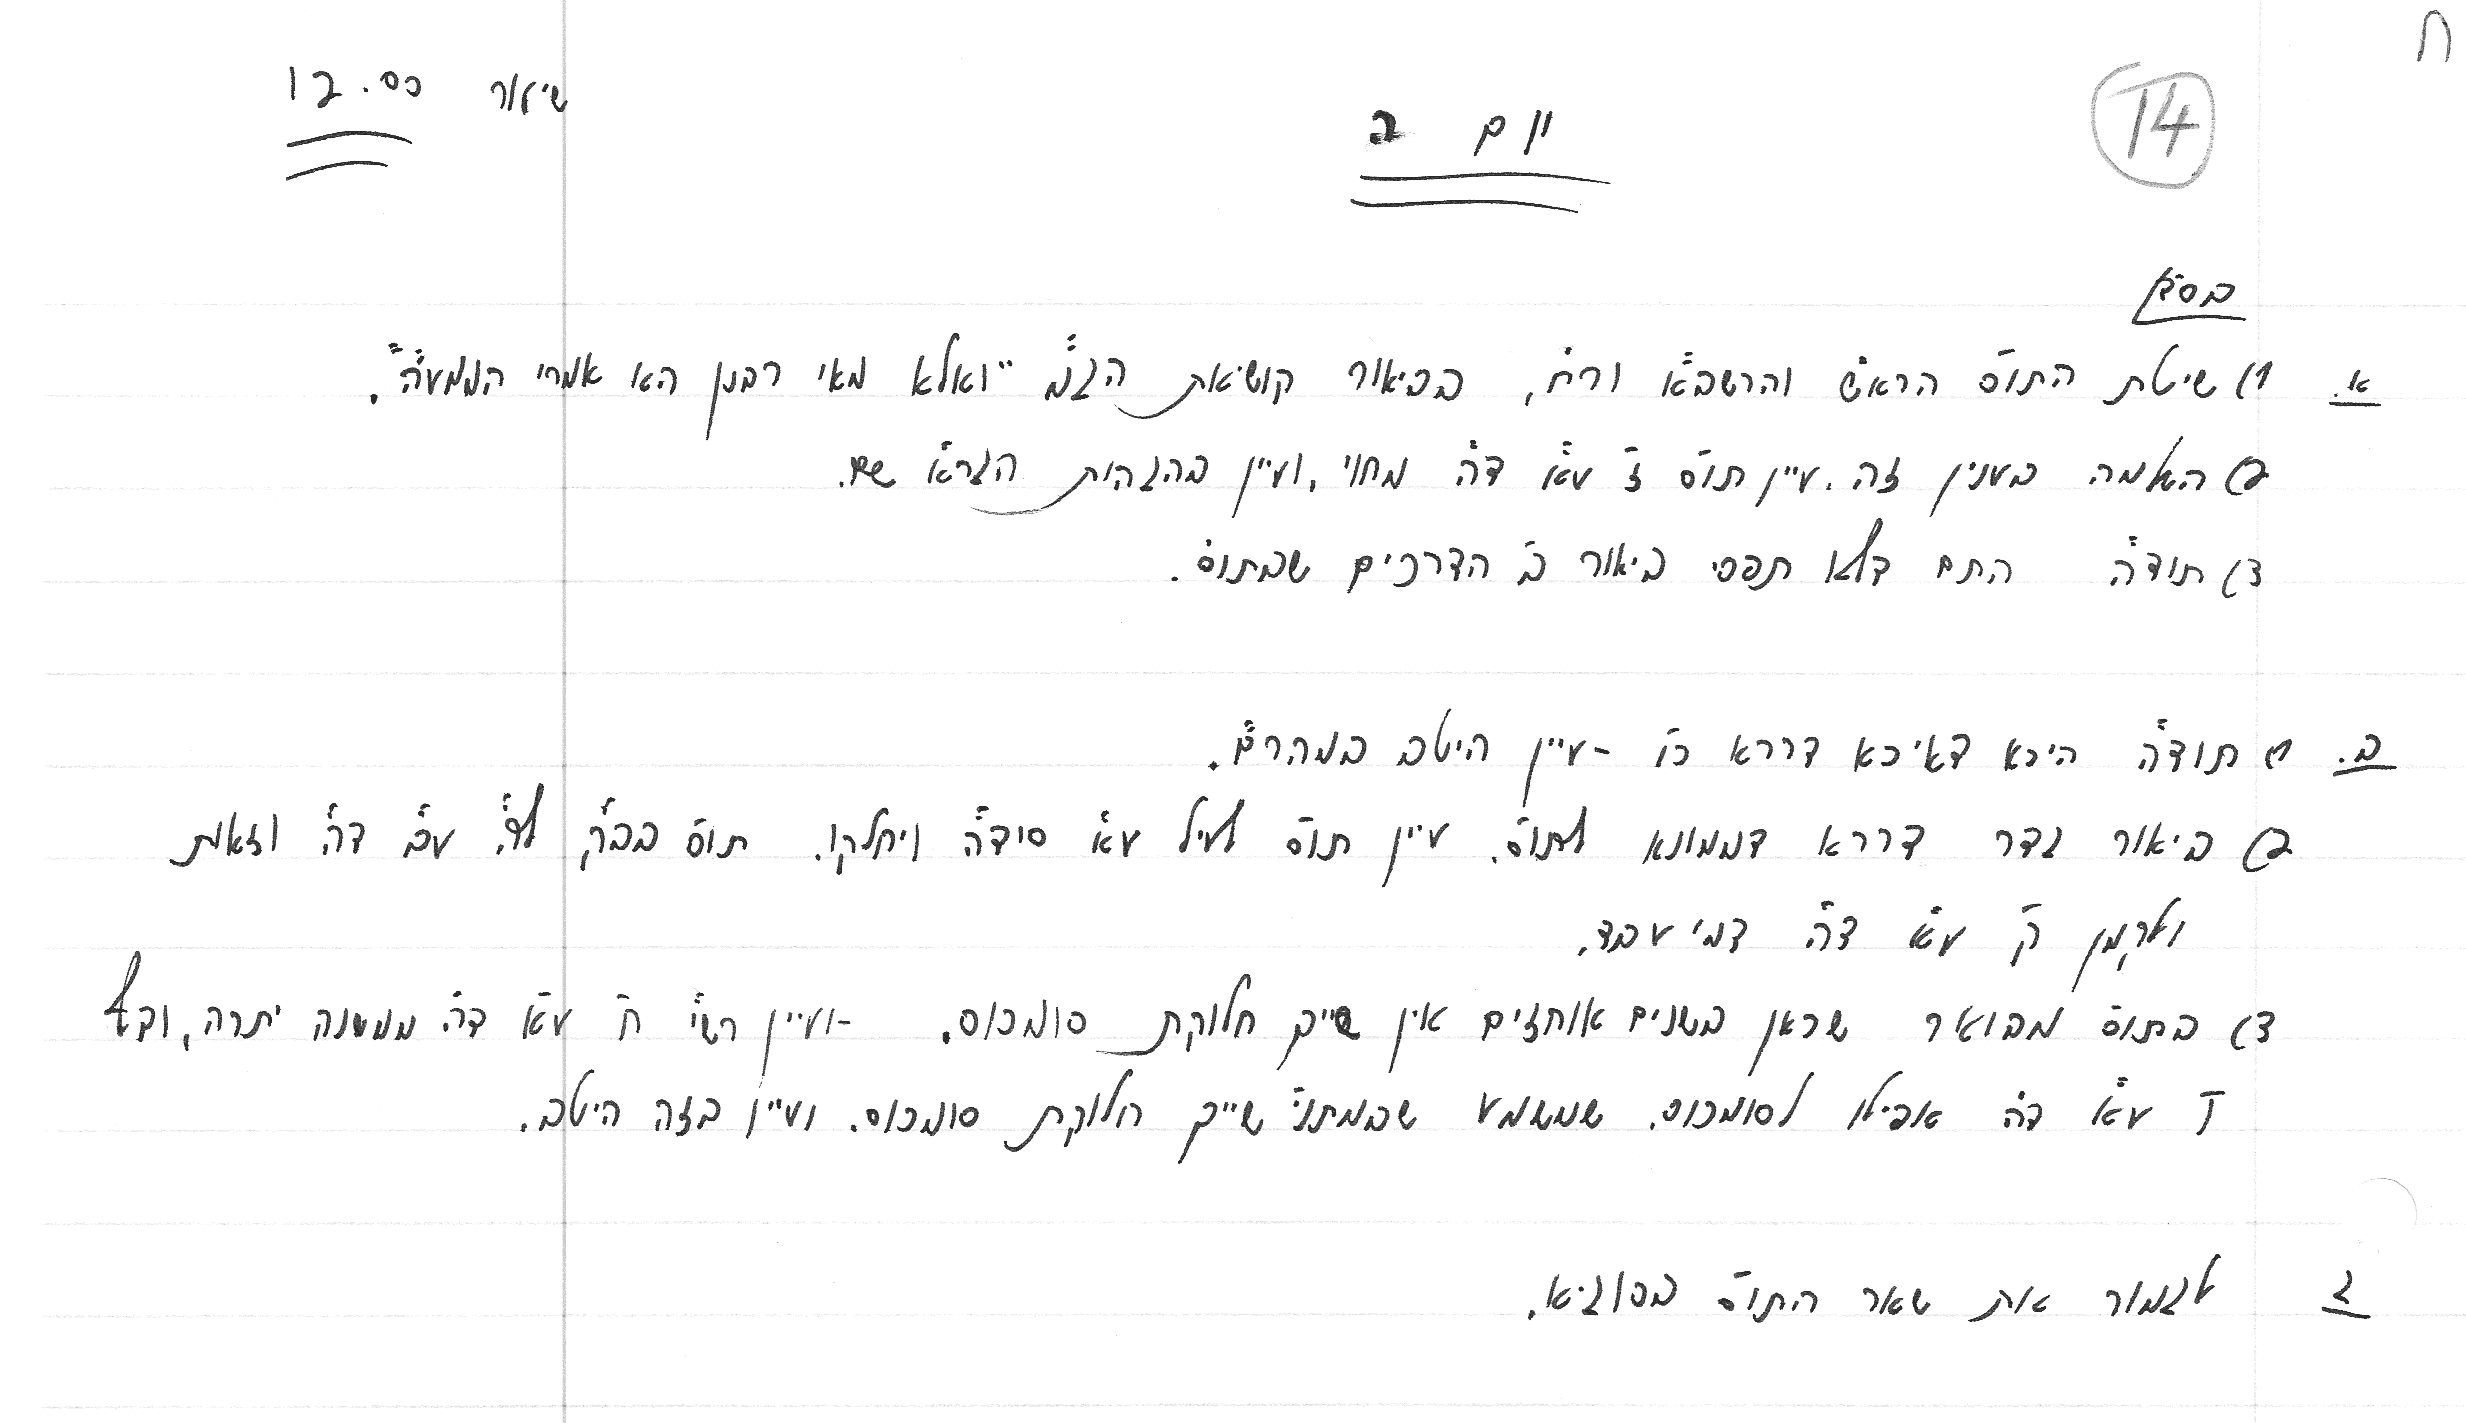 ח
14
יום ב
שיעור 12.00
בס"ד
א. 1) שיטת התוס' הרא"ש והרשב"א ור"ח, בביאור קושיאת הגמ' "ואלא מאי רבנן הא אמרי הממע"ה".
2) האמה בענין זה. עיין תוס' ז' ע"א ד"ה מחוי, ועיין בהגהות הגר"א שם.
3) תוד"ה התם דלאו תפסי ביאור ב' הדרכים שבתוס'.
ב. 1) תוד"ה היכא דאיכא דררא כו' - עיין היטב במהר"ם.
2) ביאור גדר דררא דממונא לתוס'. עיין תוס' לעיל ע"א סוד"ה ויחלקו. תוס' בב"ק ל"ה. ע"ב ד"ה וזאת
ולקמן ק' ע"א ד"ה דמי עבד.
3) בתוס' מבואר שראן בשנים אוחזים אין שייך חלוקת סומכוס. - ועיין רש"י ח' ע"א ד"ה ממשנה יתרה, ובדף
ד' ע"א ד"ה אפילו לסומכוס. שמשמע שבמתני' שייך חלוקת סומכוס. ועיין בזה היטב.
ג לגמור את שאר התוס' בסוגיא.